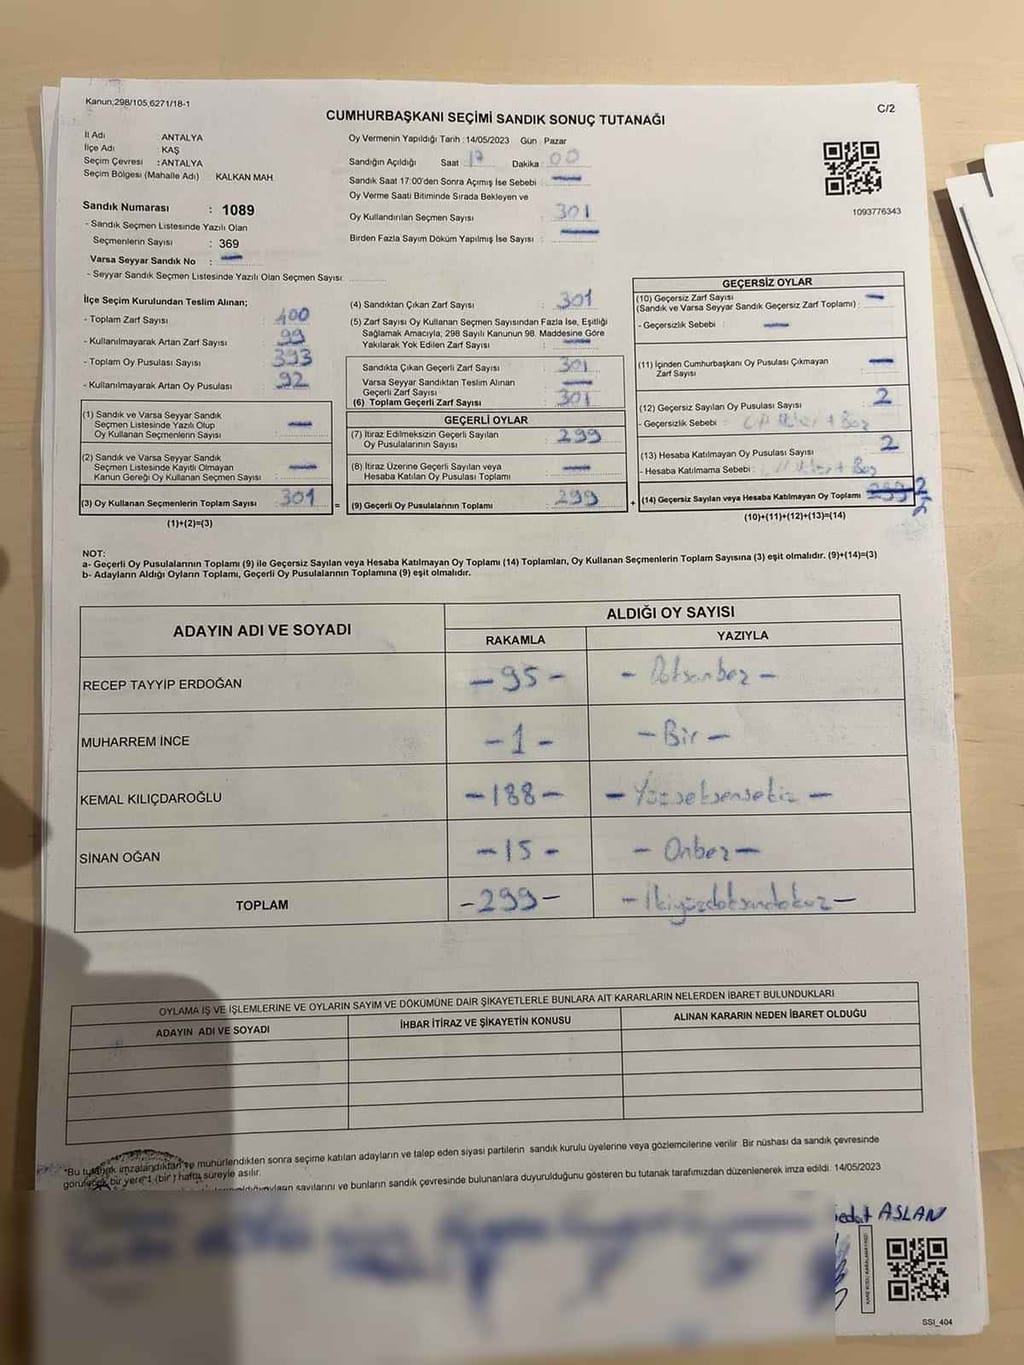 Kanun;298/105,6271/18-1
C/2
CUMHURBAŞKANI SEÇİMİ SANDIK SONUÇ TUTANAĞI
İl Adı ANTALYA
İlçe Adı : KAŞ
Seçim Çevresi : ANTALYA
Seçim Bölgesi (Mahalle Adı) KALKAN MAH.
Sandık Numarası : 1089
- Sandık Seçmen Listesinde Yazılı Olan
Seçmenlerin Sayısı : 369
Varsa Seyyar Sandık No : —
- Seyyar Sandık Seçmen Listesinde Yazılı Olan Seçmen Sayısı:
Oy Vermenin Yapıldığı Tarih : 14/05/2023 Gün : Pazar
Sandığın Açıldığı Saat 17 Dakika 00
Sandık Saat 17:00'den Sonra Açımış İse Sebebi : —
Oy Verme Saati Bitiminde Sırada Bekleyen ve
Oy Kullandırılan Seçmen Sayısı : 301
Birden Fazla Sayım Döküm Yapılmış İse Sayısı : —
1093776343
İlçe Seçim Kurulundan Teslim Alınan;
- Toplam Zarf Sayısı : 400
- Kullanılmayarak Artan Zarf Sayısı : 99
- Toplam Oy Pusulası Sayısı : 393
- Kullanılmayarak Artan Oy Pusulası : 92
(1) Sandık ve Varsa Seyyar Sandık
Seçmen Listesinde Yazılı Olup
Oy Kullanan Seçmenlerin Sayısı : —
(2) Sandık ve Varsa Seyyar Sandık
Seçmen Listesinde Kayıtlı Olmayan
Kanun Gereği Oy Kullanan Seçmen Sayısı : —
(3) Oy Kullanan Seçmenlerin Toplam Sayısı : 301 =
(1)+(2)=(3)
(4) Sandıktan Çıkan Zarf Sayısı : 301
(5) Zarf Sayısı Oy Kullanan Seçmen Sayısından Fazla İse, Eşitliği
Sağlamak Amacıyla, 298 Sayılı Kanunun 98. Maddesine Göre
Yakılarak Yok Edilen Zarf Sayısı : —
Sandıkta Çıkan Geçerli Zarf Sayısı : 301
Varsa Seyyar Sandıktan Teslim Alınan
Geçerli Zarf Sayısı : —
(6) Toplam Geçerli Zarf Sayısı : 301
GEÇERLİ OYLAR
(7) İtiraz Edilmeksizin Geçerli Sayılan
Oy Pusulalarının Sayısı : 299
(8) İtiraz Üzerine Geçerli Sayılan veya
Hesaba Katılan Oy Pusulası Toplamı : —
(9) Geçerli Oy Pusulalarının Toplamı : 299 +
GEÇERSİZ OYLAR
(10) Geçersiz Zarf Sayısı
(Sandık ve Varsa Seyyar Sandık Geçersiz Zarf Toplamı) : —
- Geçersizlik Sebebi : —
(11) İçinden Cumhurbaşkanı Oy Pusulası Çıkmayan
Zarf Sayısı : —
(12) Geçersiz Sayılan Oy Pusulası Sayısı : 2
- Geçersizlik Sebebi : + Boş
(13) Hesaba Katılmayan Oy Pusulası Sayısı : 2
- Hesaba Katılmama Sebebi : + Boş
(14) Geçersiz Sayılan veya Hesaba Katılmayan Oy Toplamı 299 2
(10)+(11)+(12)+(13)=(14)
NOT:
a- Geçerli Oy Pusulalarının Toplamı (9) ile Geçersiz Sayılan veya Hesaba Katılmayan Oy Toplamı (14) Toplamları, Oy Kullanan Seçmenlerin Toplam Sayısına (3) eşit olmalıdır. (9)+(14)=(3)
b- Adayların Aldığı Oyların Toplamı, Geçerli Oy Pusulalarının Toplamına (9) eşit olmalıdır.
ADAYIN ADI VE SOYADI ALDIĞI OY SAYISI
RAKAMLA YAZIYLA
RECEP TAYYİP ERDOĞAN – 95 – – Doksanbeş –
MUHARREM İNCE – 1 – – Bir –
KEMAL KILIÇDAROĞLU – 188 – – Yüzseksensekiz –
SİNAN OĞAN – 15 – – Onbeş –
TOPLAM – 299 – – İkiyüzdoksandokuz –
OYLAMA İŞ VE İŞLEMLERİNE VE OYLARIN SAYIM VE DÖKÜMÜNE DAİR ŞİKAYETLERLE BUNLARA AİT KARARLARIN NELERDEN İBARET BULUNDUKLARI
ADAYIN ADI VE SOYADI İHBAR İTİRAZ VE ŞİKAYETİN KONUSU ALINAN KARARIN NEDEN İBARET OLDUĞU
*Bu tutanak imzalandıktan ve mühürlendikten sonra seçime katılan adayların ve talep eden siyasi partilerin sandık kurulu üyelerine veya gözlemcilerine verilir. Bir nüshası da sandık çevresinde
görülecek bir yere 1 (bir) hafta süreyle asılır.
sayılarını ve bunların sandık çevresinde bulunanlara duyurulduğunu gösteren bu tutanak tarafımızdan düzenlenerek imza edildi. 14/05/2023
ASLAN
SSI_404